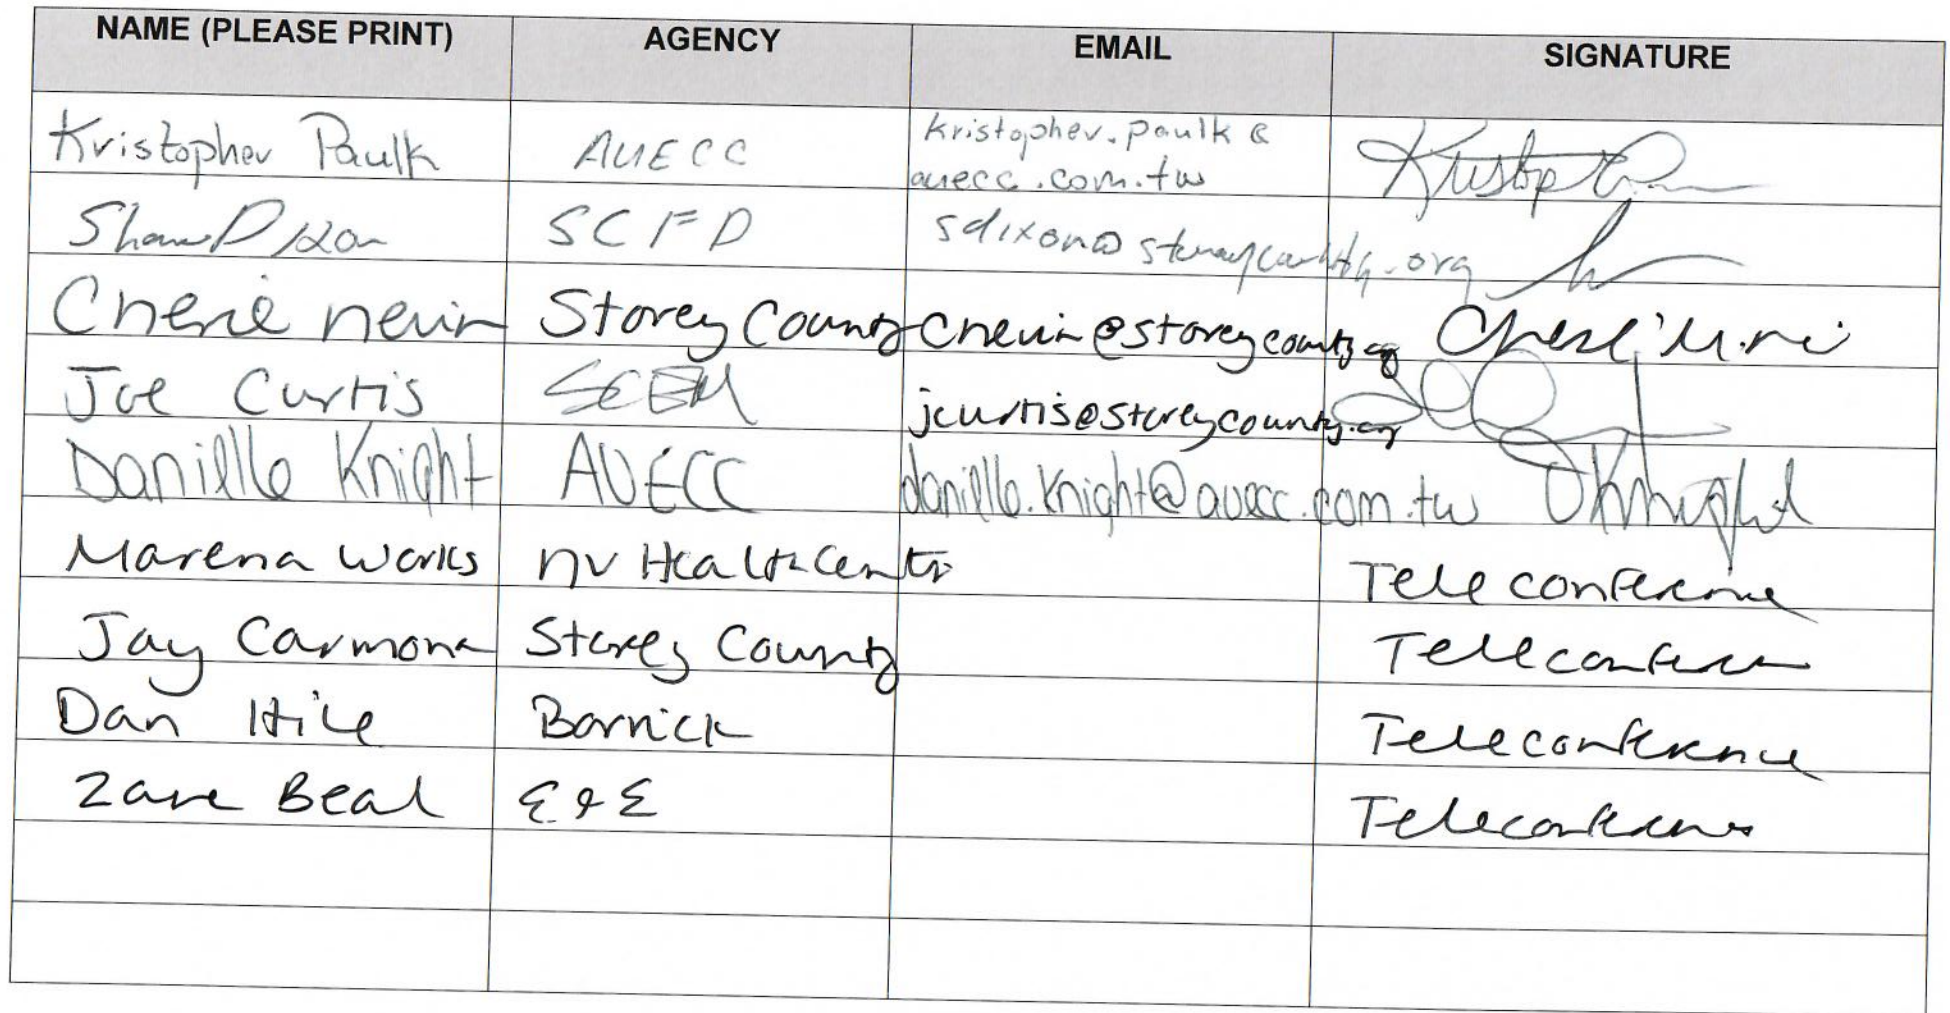 NAME (PLEASE PRINT) AGENCY EMAIL SIGNATURE
Kristopher Paulk AUECC kristopher.paulk@
auecc.com.tw
Shawn Dixon SCFD sdixon@storeycounty.org
Cherie Nevin Storey County cnevin@storeycounty.org
Joe Curtis SCEM jcurtis@storeycounty.org
Danielle Knight AUECC danielle.knight@auecc.com.tw DKnight
Marena Works NV Health Centr Teleconference
Jay Carmona Storey County Teleconference
Dan Hile Barrick Teleconference
Zane Beal E&E Teleconference